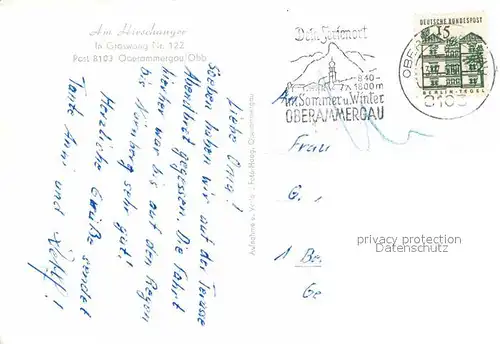 Am Hirschanger
In Grauwang Nr. 122
Post 8103 Oberammergau/Obb
Dein Ferienort
840-
1800m
Im Sommer u. Winter
OBERAMMERGAU
DEUTSCHE BUNDESPOST
15
BERLIN-TEGEL
Liebe
soeben haben wir auf der Terasse
Abendbrot gegessen. Die Fahrt
hierher war bis auf den Regen
bis Nürnberg sehr gut!
Herzliche Grüße sendet
Tante Anni und
Frau
G.
1 Be.
Ge
privacy protection
Datenschutz